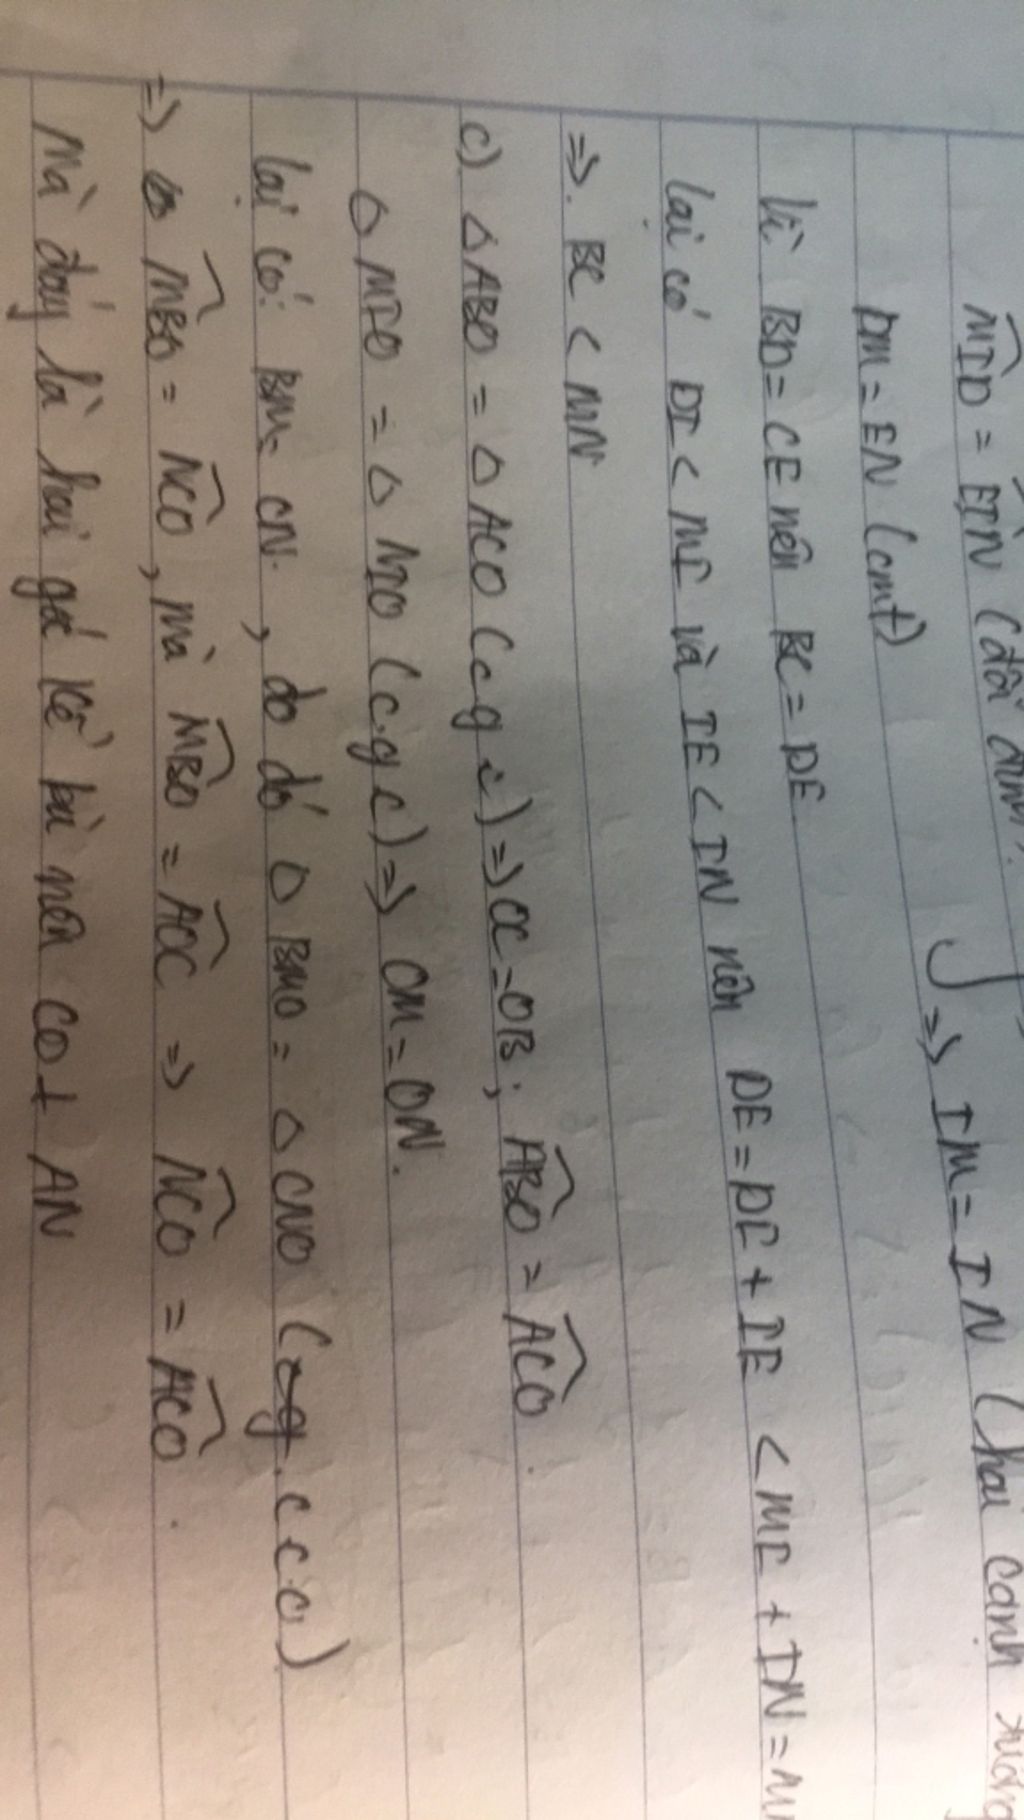 MID = EIN (đối đỉnh)
DM = EN (cmt)
=> IM = IN (hai cạnh
Vì BD = CE nên BC = DE
lại có DI < MI và IE < IN nên DE = DI + IE < MI + IN =
=> BC < MN
c) △ABO = △ACO (c g c) => OC = OB; ABO = ACO.
△MIO = △NIO (c.g c) => OM = ON.
lại có: BM = CN, do đó △BMO = △CNO (c c.c)
=> MBO = NCO, mà MBO = AOC => NCO = ACO.
mà đây là hai góc kề bù nên CO ⊥ AN